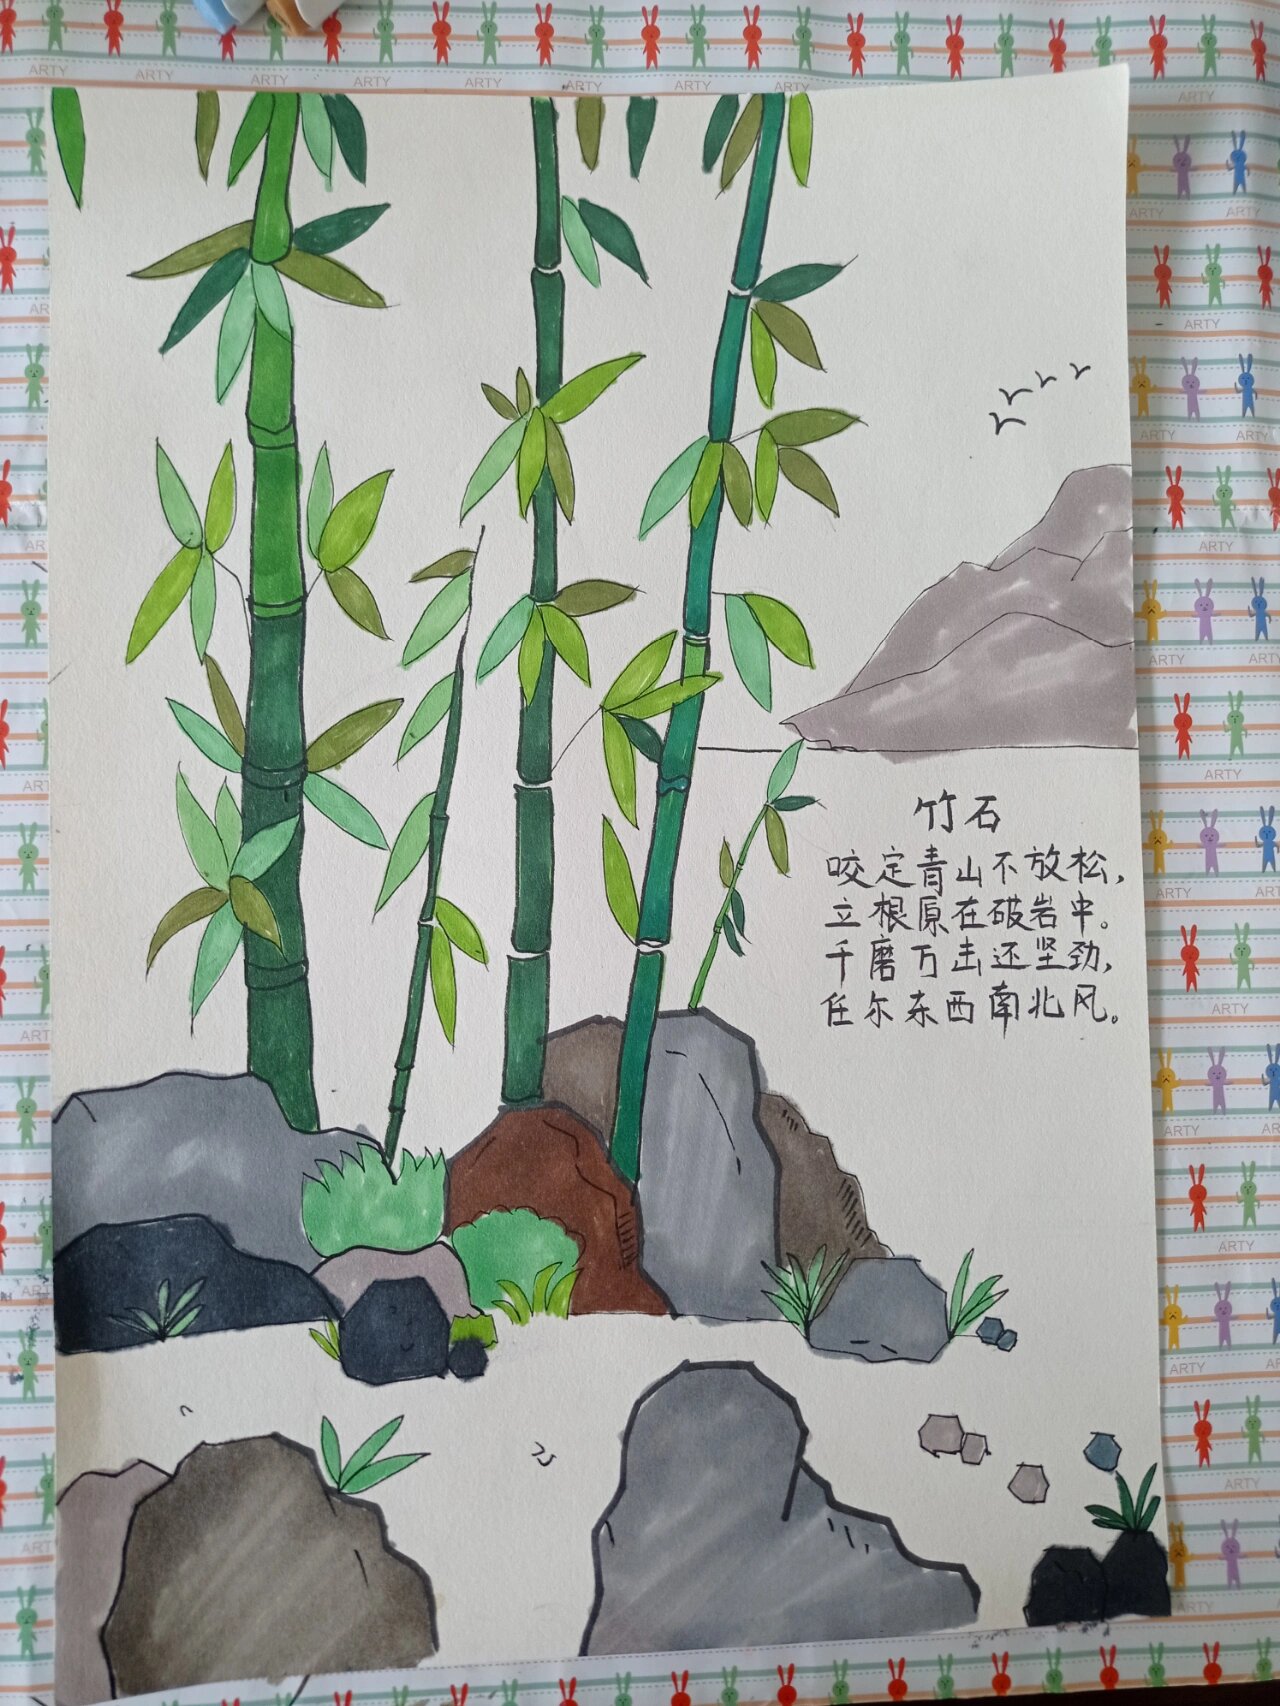 竹石
咬定青山不放松，
立根原在破岩中。
千磨万击还坚劲，
任尔东西南北风。
ARTY ARTY ARTY ARTY ARTY ARTY ARTY
ARTY
ARTY
ARTY
ARTY
ARTY
ARTY
ARTY
ARTY
ARTY
ARTY
ARTY
ARTY
ARTY
ARTY